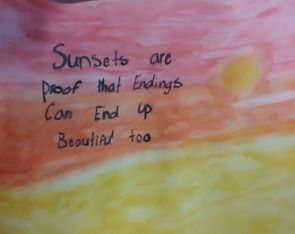 Sunsets are
Proof that Endings
Can End up
Beautiful too